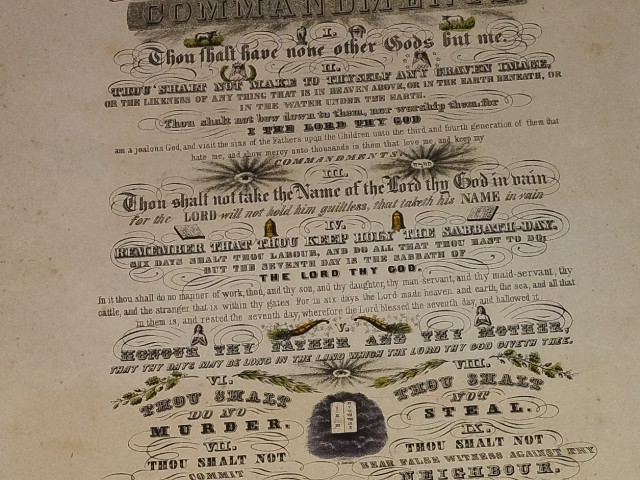 COMMANDMENTS
I.
Thou shalt have none other Gods but me.
II.
THOU SHALT NOT MAKE TO THYSELF ANY GRAVEN IMAGE,
OR THE LIKENESS OF ANY THING THAT IS IN HEAVEN ABOVE, OR IN THE EARTH BENEATH, OR
IN THE WATER UNDER THE EARTH.
Thou shalt not bow down to them, nor worship them: for
I THE LORD THY GOD
am a jealous God, and visit the sins of the Fathers upon the Children unto the third and fourth generation of them that
hate me, and show mercy unto thousands in them that love me, and keep my
COMMANDMENTS.
III.
Thou shalt not take the Name of the Lord thy God in vain
for the LORD will not hold him guiltless, that taketh his NAME in vain
IV.
REMEMBER THAT THOU KEEP HOLY THE SABBATH-DAY.
SIX DAYS SHALT THOU LABOUR, AND DO ALL THAT THOU HAST TO DO;
BUT THE SEVENTH DAY IS THE SABBATH OF
THE LORD THY GOD.
In it thou shalt do no manner of work, thou, and thy son, and thy daughter, thy man-servant, and thy maid-servant, thy
cattle, and the stranger that is within thy gates. For in six days the Lord made heaven and earth, the sea, and all that
in them is, and rested the seventh day, wherefore the Lord blessed the seventh day, and hallowed it.
V.
HONOUR THY FATHER AND THY MOTHER,
THAT THY DAYS MAY BE LONG IN THE LAND WHICH THE LORD THY GOD GIVETH THEE.
VI.
THOU SHALT
DO NO
MURDER.
VII.
THOU SHALT NOT
COMMIT
VIII.
THOU SHALT
NOT
STEAL.
IX.
THOU SHALT NOT
BEAR FALSE WITNESS AGAINST THY
NEIGHBOUR.